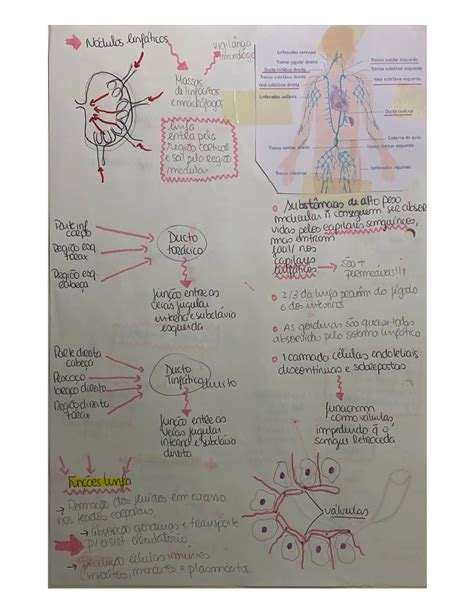 Nódulos linfáticos
vigilância
imunológica
Massas
de linfócitos
e macrófagos
linfa
entra pela
região cortical
e sai pela região
medular
Linfonodos cervicais
Tronco jugular direito
Ducto linfático direito
Tronco subclávio direito
Veia subclávia direita
Linfonodos axilares
Tronco jugular esquerdo
Tronco subclávio esquerdo
Veia subclávia esquerda
Ducto torácico
Cisterna do quilo
Tronco lombar direito
Tronco lombar esquerdo
Linfonodos inguinais
Tronco intestinal
Substâncias de alto peso
molecular ñ conseguem ser absor
vidas pelos capilares sanguíneos,
mas entram
fácil/ nos
capilares
linfáticos
são +
permeáveis!!!
2/3 da linfa provém do fígado
e dos intestinos
As gorduras são quase todas
absorvidas pelo sistema linfático
1 camada células endoteliais
descontínuas e sobrepostas
funcionam
como válvulas
impedindo q o
sangue retroceda
Parte inf
corpo
Região esq.
tórax
Região esq.
cabeça
Ducto
torácico
junção entre as
veias jugular
interna e subclávia
esquerda
Parte direita
cabeça
Pescoço
braço direito
Região direita
tórax
Ducto
linfático
direito
junção entre as
veias jugular
interna e subclávia
direita
Funções linfa
→ Remoção dos fluidos em excesso
nos tecidos corporais
→ absorção gorduras e transporte
p/ o sist circulatório
→ produção células imunes
(linfócitos, monócitos e plasmócitos)
válvulas